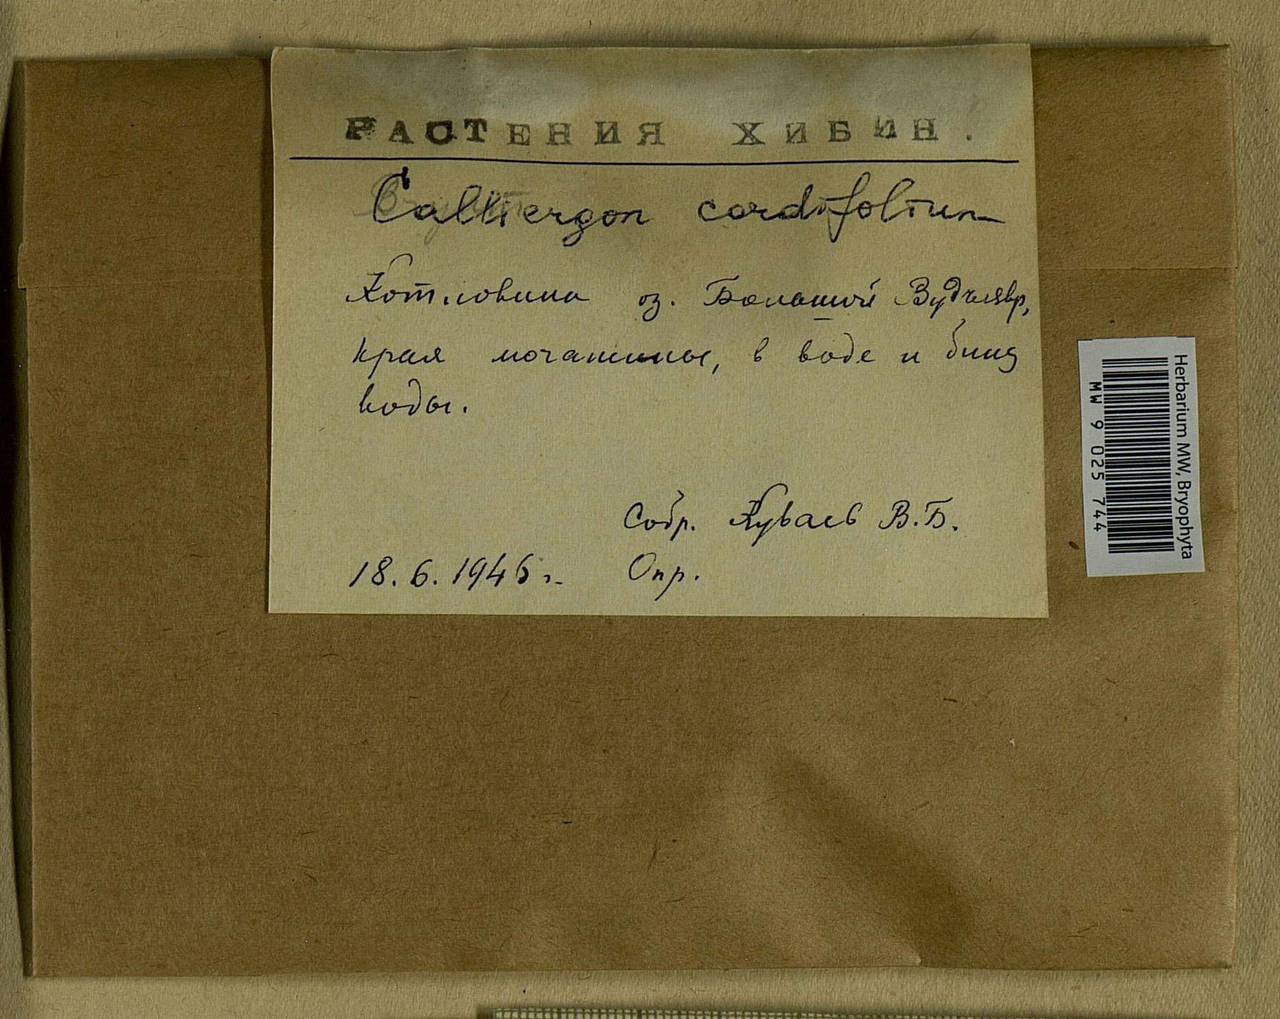 РАСТЕНИЯ ХИБИН.
Calliergon cordifolium
Котловина оз. Большой Вудъявр,
края мочажины, в воде и близ
воды.
Собр. Куваев В.Б.
18.6.1946 г. Опр.
Herbarium MW, Bryophyta
MW 9 025 744